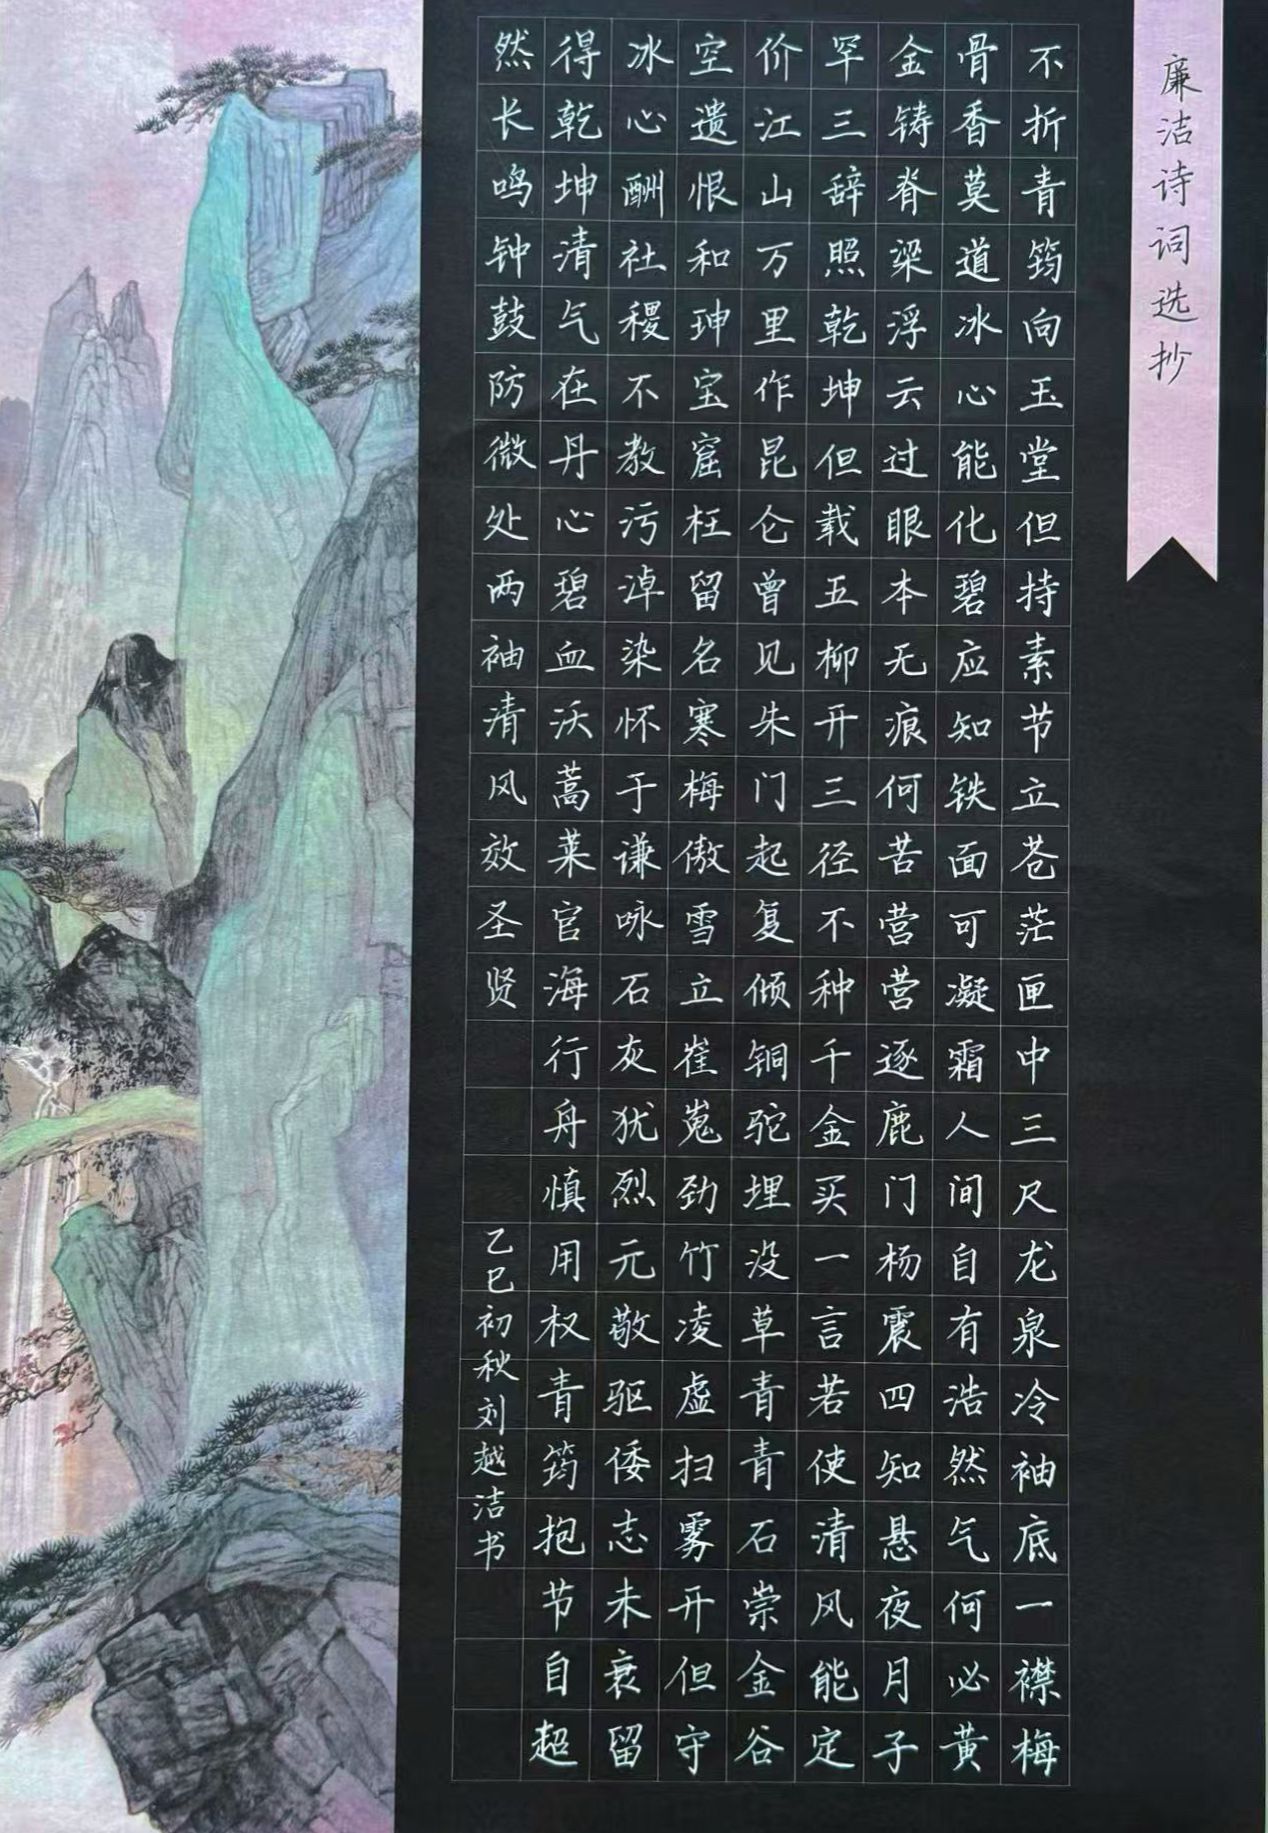 廉洁诗词选抄
不折青筠向玉堂但持素节立苍茫匣中三尺龙泉冷袖底一襟梅
骨香莫道冰心能化碧应知铁面可凝霜人间自有浩然气何必黄
金铸脊梁浮云过眼本无痕何苦营营逐鹿门杨震四知悬夜月子
罕三辞照乾坤但载五柳开三径不种千金买一言若使清风能定
价江山万里作昆仑曾见朱门起复倾铜驼埋没草青青石崇金谷
空遗恨和珅宝窟枉留名寒梅傲雪立崔嵬劲竹凌虚扫雾开但守
冰心酬社稷不教污淖染怀于谦咏石灰犹烈元敬驱倭志未衰留
得乾坤清气在丹心碧血沃蒿莱官海行舟慎用权青筠抱节自超
然长鸣钟鼓防微处两袖清风效圣贤
乙巳初秋刘越洁书